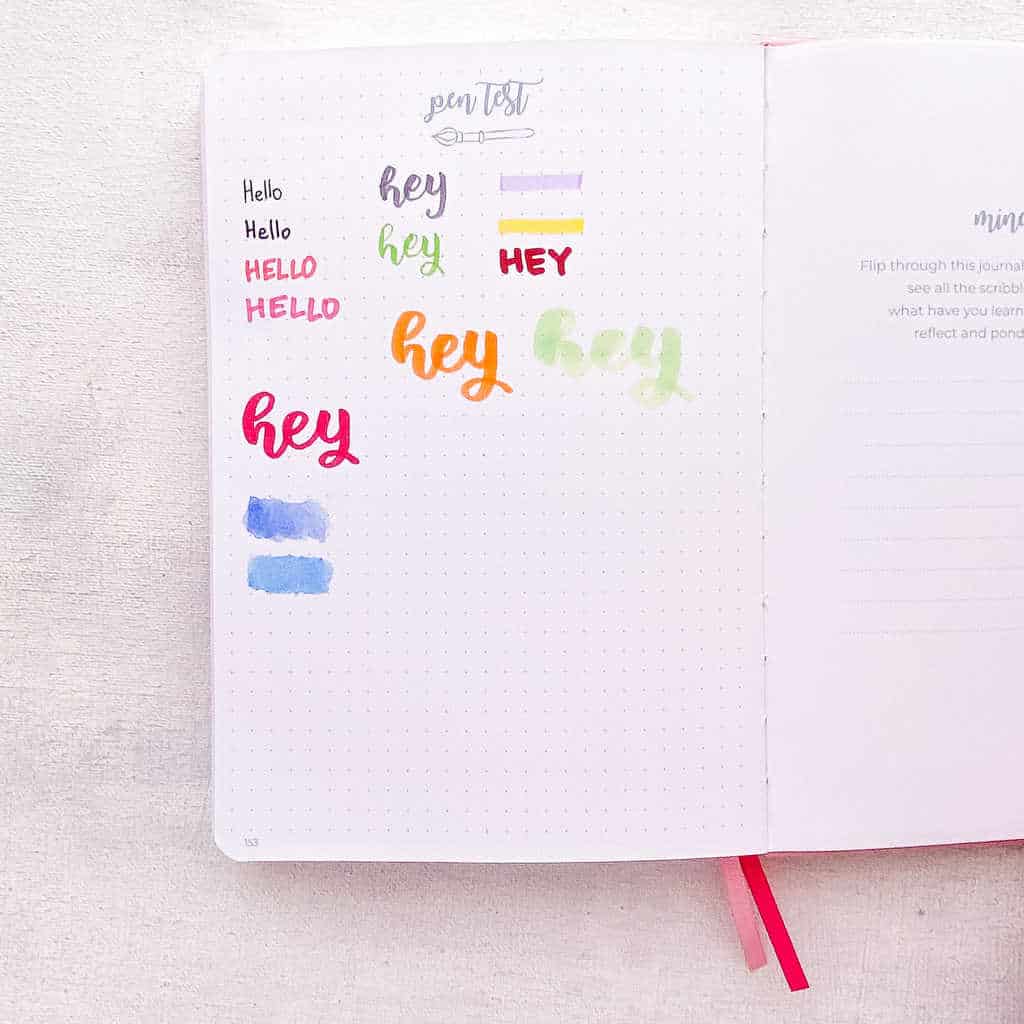 pen test
Hello
Hello
HELLO
HELLO
hey
hey
HEY
hey hey
hey
153
Flip through this journal
see all the
what have you
reflect and